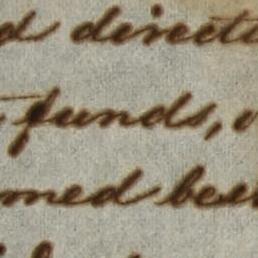 d direct
funds,
med bee